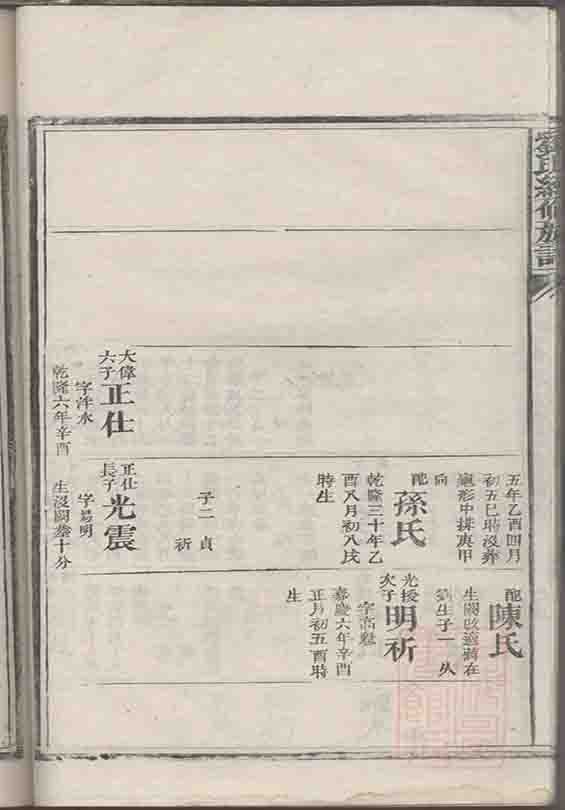 劉氏續修族譜
大偉
六子
正仕
字泮水
乾隆六年辛酉
五年乙酉四月
初五巳時沒葬
龜形中排庚甲
向
配
孫氏
乾隆三十年乙
酉八月初八戌
時生
子二 貞
祈
正仕
長子
光震
字易明
生沒闕葬十分
配
陳氏
生闕改適蔣在
劉生子一 从
光授
次子
明祈
字高魁
嘉慶六年辛酉
正月初五酉時
生